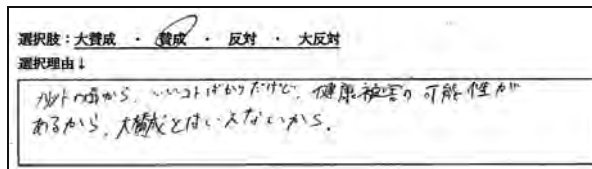 選択肢：大賛成 ・ 賛成 ・ 反対 ・ 大反対
選択理由↓
から、いいコトばかりだけど、健康被害の可能性が
あるから、大賛成とはいえないから。